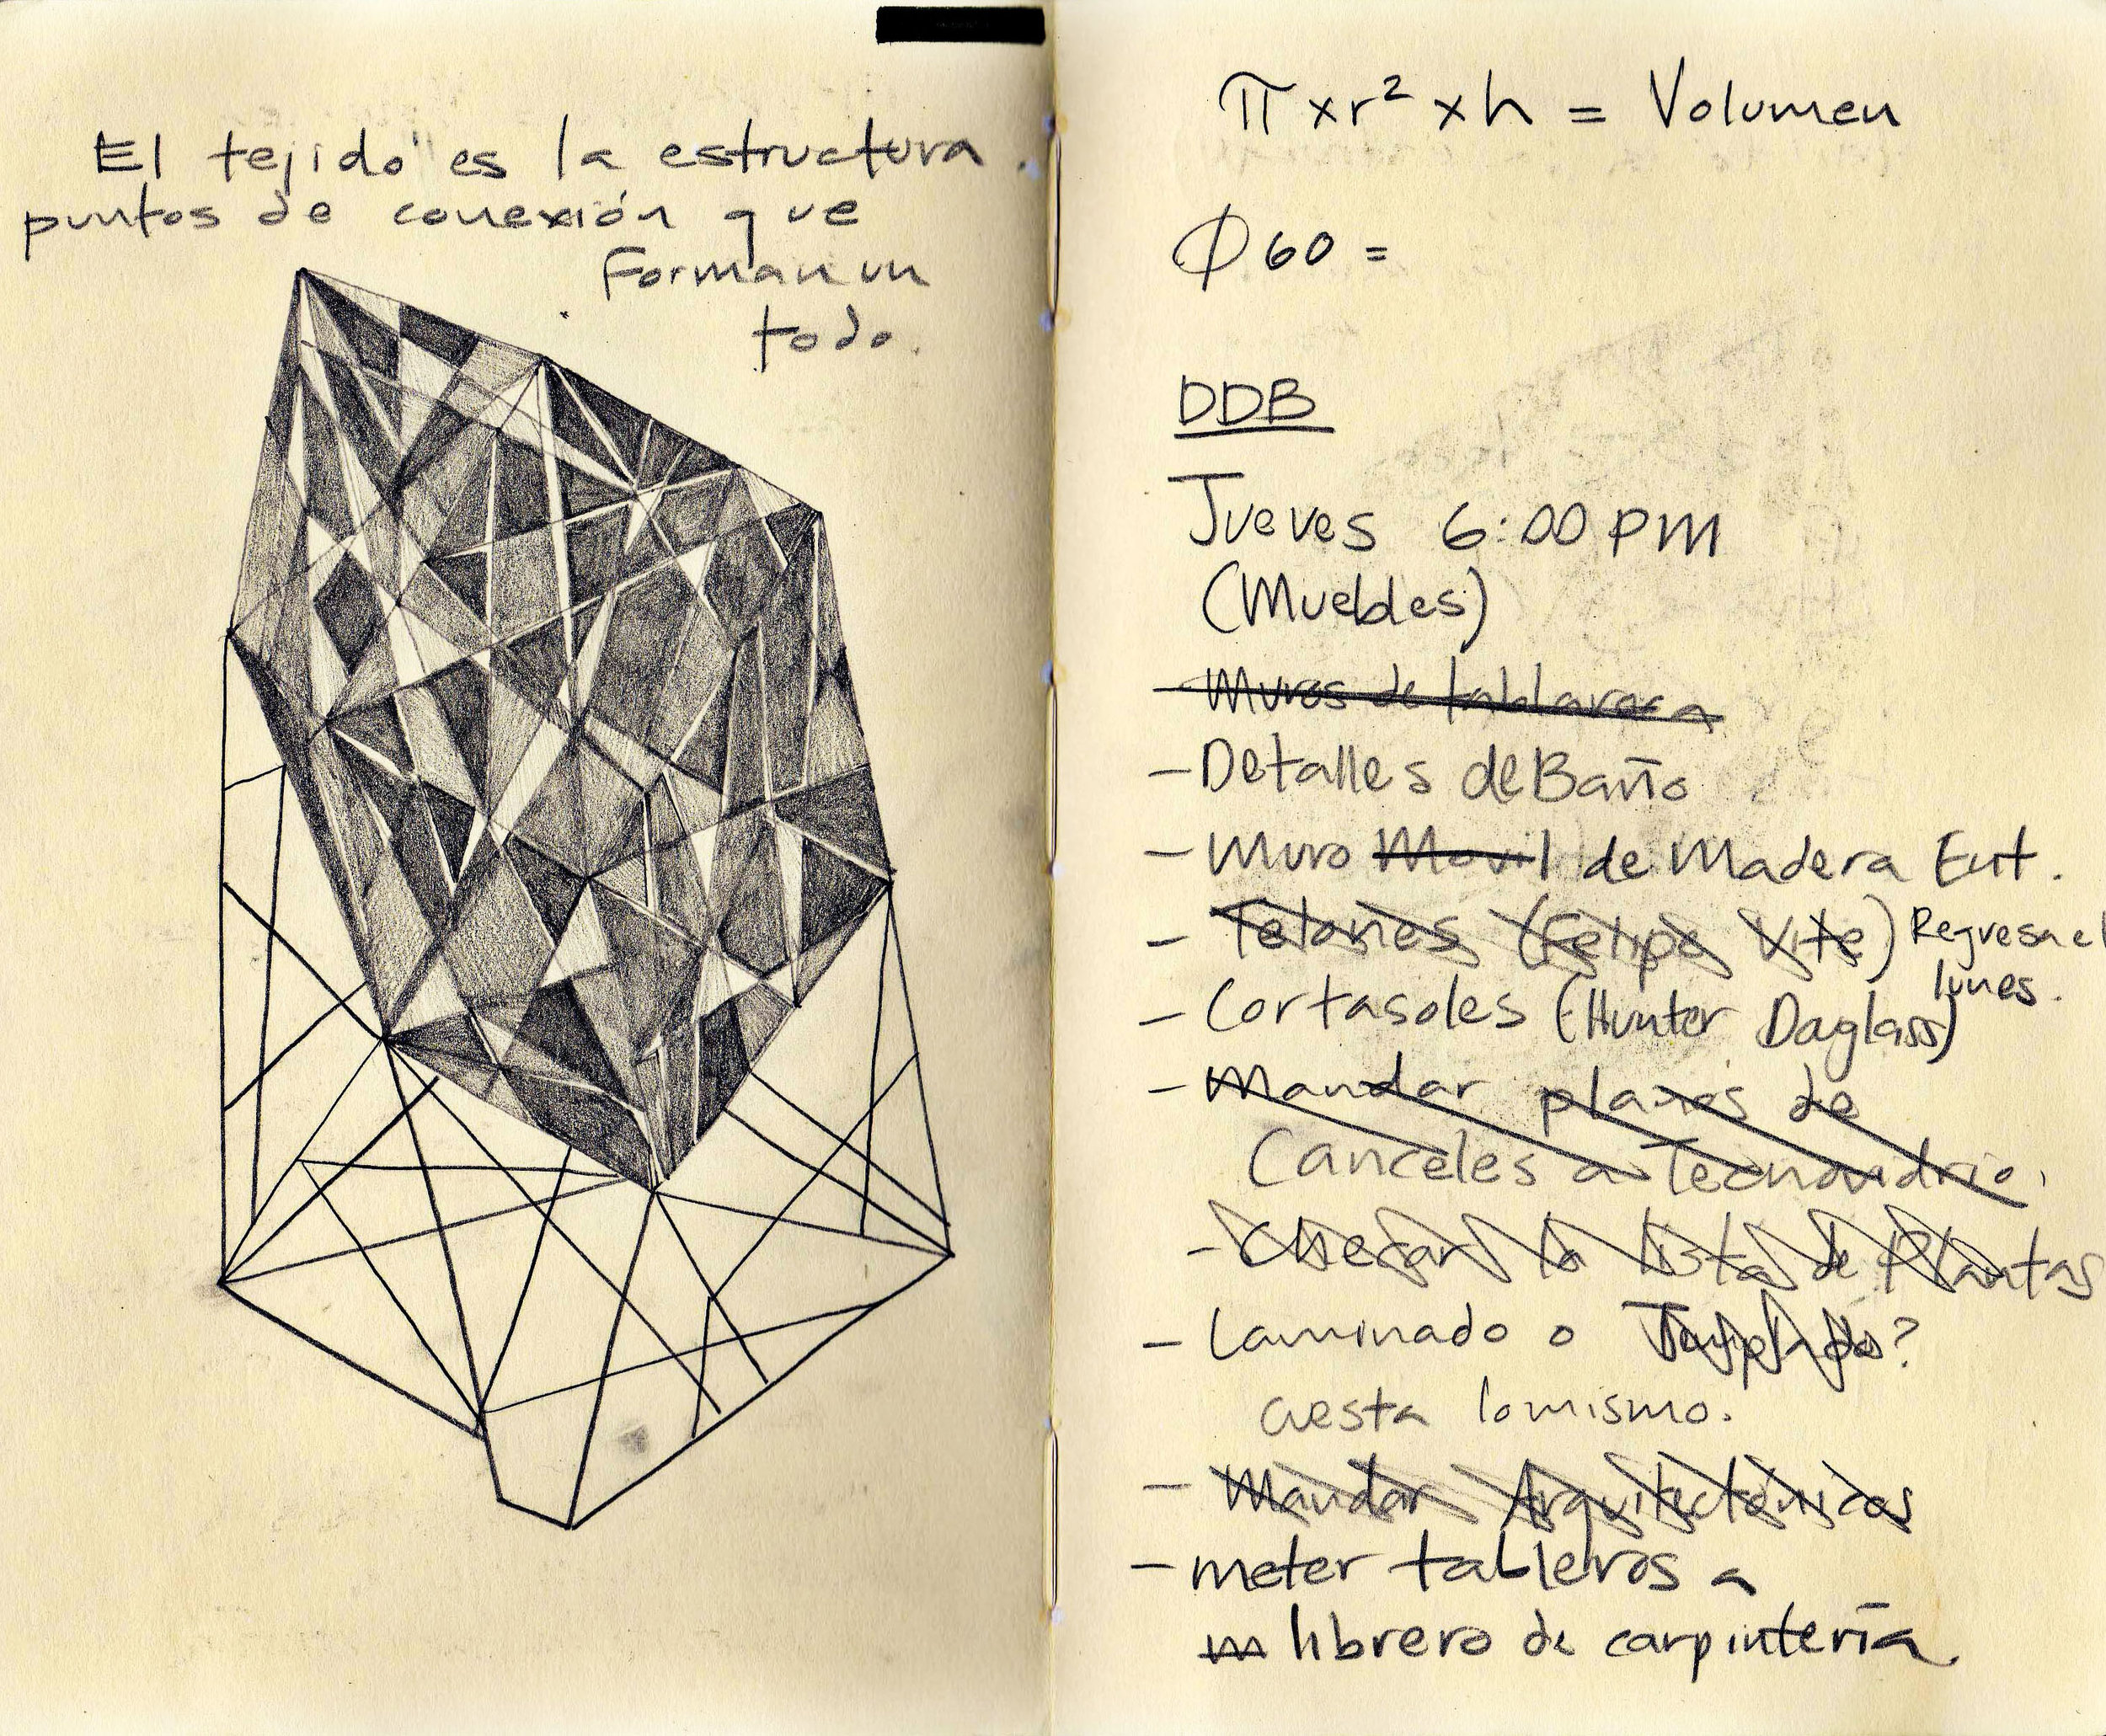 El tejido es la estructura.
puntos de conexión que
Forman un
todo.
π x r² x h = Volumen
Ø 60 =
DDB
Jueves 6:00 PM
(Muebles)
- Muros de tablaroca
- Detalles de Baño
- Muro Movil de Madera Ext.
- Telones (Felipe Vite) Regresa el
lunes.
- Cortasoles (Hunter Daglass)
- Mandar planos de
Canceles a Tecnovidrio.
- Checar la lista de Plantas
- Laminado o Templado?
cuesta lo mismo.
- Mandar Arquitectónicos
- meter talleros a
librero de carpintería